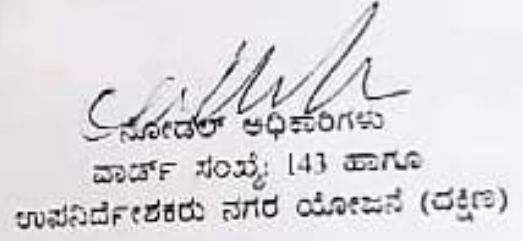 ನೋಡಲ್ ಅಧಿಕಾರಿಗಳು
ವಾರ್ಡ್ ಸಂಖ್ಯೆ: 143 ಹಾಗೂ
ಉಪನಿರ್ದೇಶಕರು ನಗರ ಯೋಜನೆ (ದಕ್ಷಿಣ)